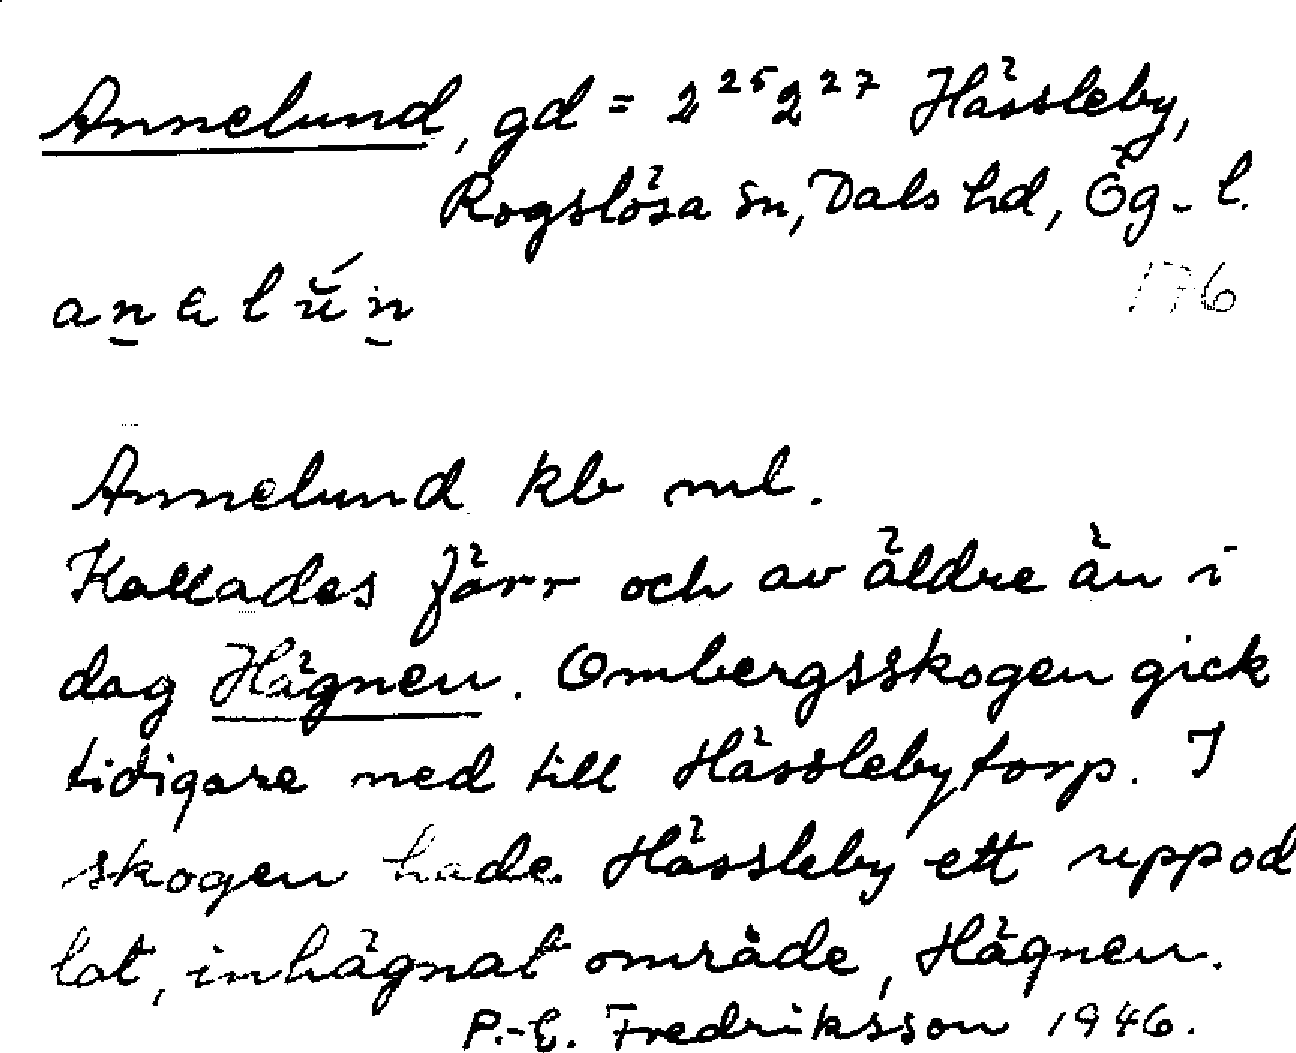 Annelund, gd = 2²⁵2²⁷ Hässleby,
Rogslösa sn, Dals hd, Ög-l.
176
Annelund kb ml.
Kallades förr och av äldre än i
dag Hägnen. Ombergsskogen gick
tidigare ned till Hässlebytorp. I
skogen hade Hässleby ett uppod
lat, inhägnat område, Hägnen.
P.-E. Fredriksson 1946.